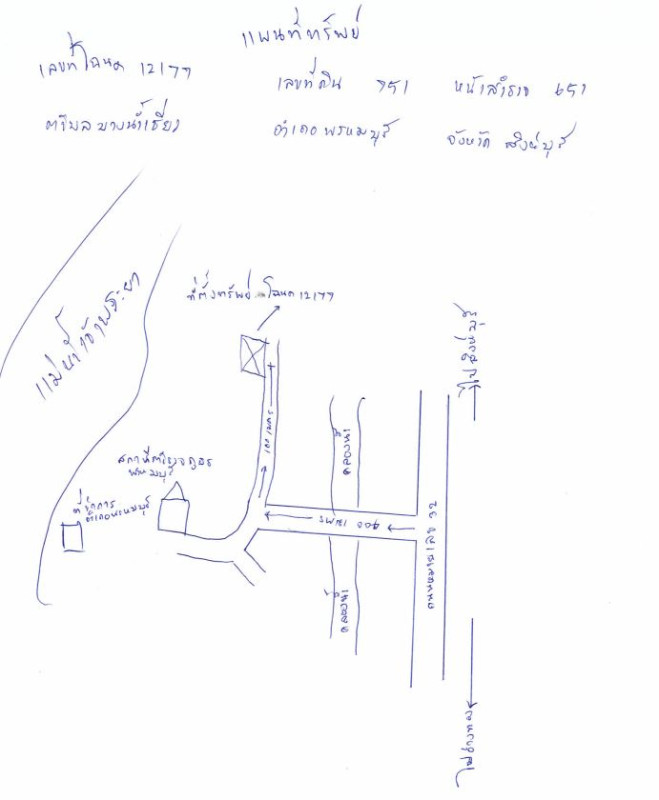 แผนที่ทรัพย์
เลขที่โฉนด 12177
เลขที่ดิน 751 หน้าสำรวจ 651
ตำบล บางน้ำเชี่ยว
อำเภอ พรหมบุรี จังหวัด สิงห์บุรี
แม่น้ำเจ้าพระยา
ที่ตั้งทรัพย์ โฉนด 12177
ไปสิงห์บุรี
เมตร
คลองน้ำ
สถานีตำรวจภูธร
พรหมบุรี
ที่ว่าการ
อำเภอพรหมบุรี
900 เมตร
ถนนสายเอเชีย 32
คลองน้ำ
ไปอ่างทอง